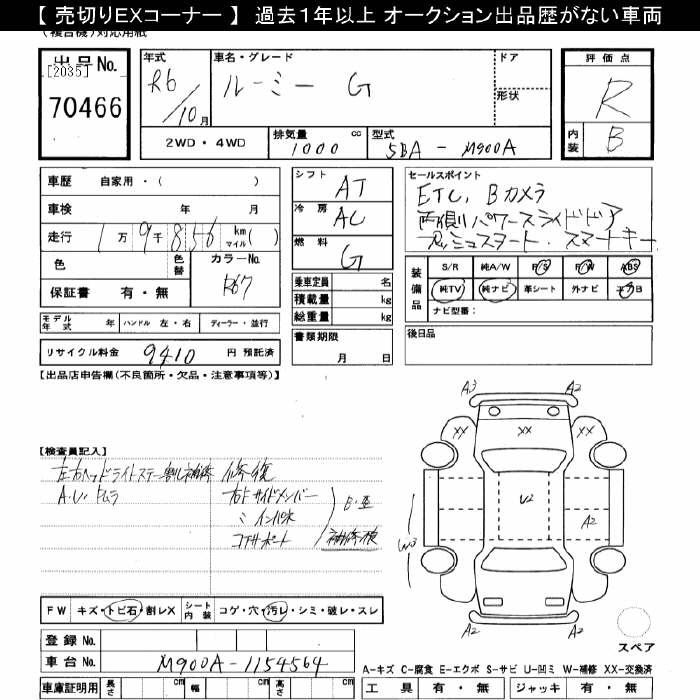 【 売切りEXコーナー 】 過去1年以上 オークション出品歴がない車両
(複合機)対応用紙
出品No. [2035] 70466
年式 R6/10月
車名・グレード ルーミー G
ドア
形状
評価点 R
内装 B
2WD・4WD
排気量 cc 1000
型式 5BA-M900A
車歴 自家用・( )
車検 年 月
走行 1万9千856 km マイル ( )
色 色替 カラーNo. R67
保証書 有・無
シフト AT
冷房 AC
燃料 G
乗車定員 名
積載量 kg
総重量 kg
書類期限 月 日
セールスポイント
ETC, Bカメラ
両側パワースライドドア
プッシュスタート. スマートキー
装備品 S/R 純A/W P/S P/W ABS
純TV 純ナビ 革シート 外ナビ エアB
ナビ型番:
後日品
モデル年式 年 ハンドル 左・右 ディーラー・並行
リサイクル料金 9410 円 預託済
【出品店申告欄(不良箇所・欠品・注意事項等)】
【検査員記入】
左右ヘッドライトステー割レ補修 修復
A.U.トムラ 右Fサイドメンバー
〃 インパネ
コアサポート
補修痕
A3 A2
XX XX XX
U2
A2
W3
A2 A2
スペア
FW キズ・トビ石・割レX
シート内装 コゲ・穴・汚レ・シミ・破レ・スレ
登録 No.
車台 No. M900A-1154564
車庫証明用 長さ cm 幅 cm 高さ cm
A-キズ C-腐食 E-エクボ S-サビ U-凹ミ W-補修 XX-交換済
工具 有・無 ジャッキ 有・無